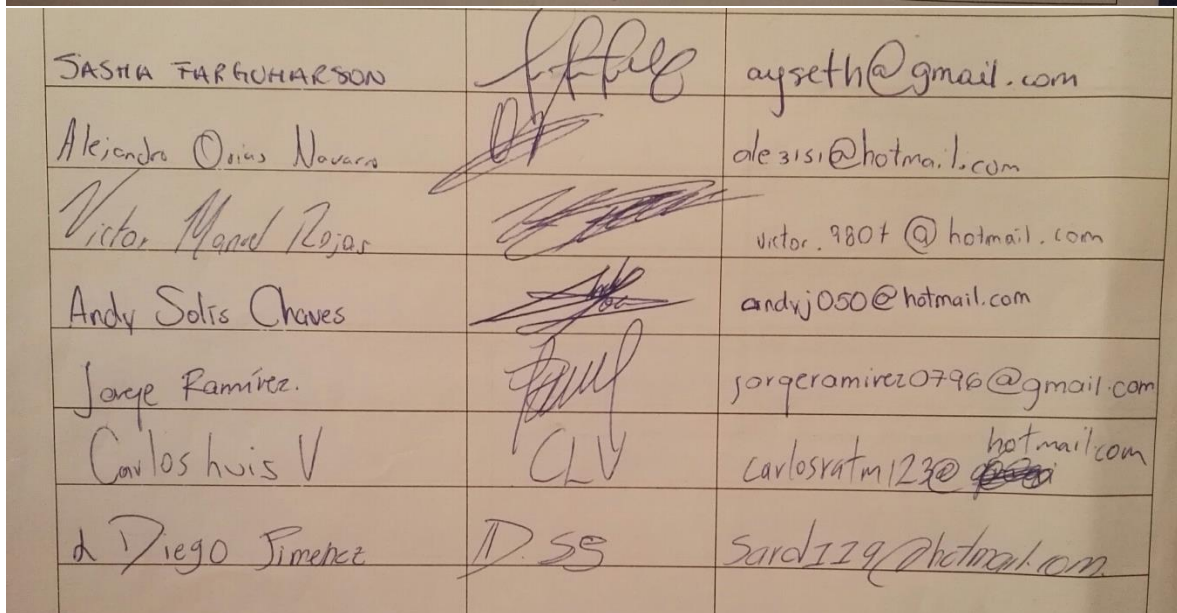 SASHA FARGUHARSON ayseth@gmail.com
Alejandro Orias Navarro ale3151@hotmail.com
Victor Manuel Rojas victor.9807@hotmail.com
Andy Solís Chaves andyj050@hotmail.com
Jorge Ramírez. jorgeramirez0796@gmail.com
Carlos Luis V CLV carlosratm123@hotmail.com
Diego Jimenez D.SS Sard119@hotmail.com